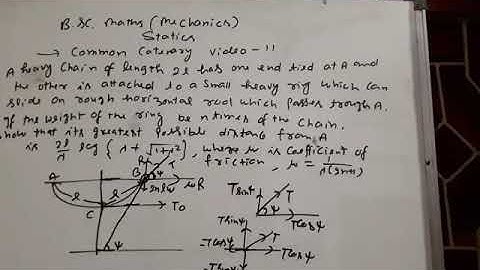 B.SC. Maths (Mechanics)
Statics
→ Common Catenary Video - 11
A heavy Chain of length 2l has one end tied at A and
the other is attached to a small heavy rig which can
slide on rough horizontal rod which passes trough A.
If the weight of the ring be n times of the Chain.
show that its greatest possible distane from A
is 2l/λ log { λ + √1+λ² }, where μ is Coefficient of
friction, μ = 1/λ(2n+1)
A B R T
ψ μR
l l 2nlw
C T₀
ψ
Tsinψ T
ψ Tcosψ
Tsinψ
-Tcosψ ψ T Tcosψ
-Tsinψ